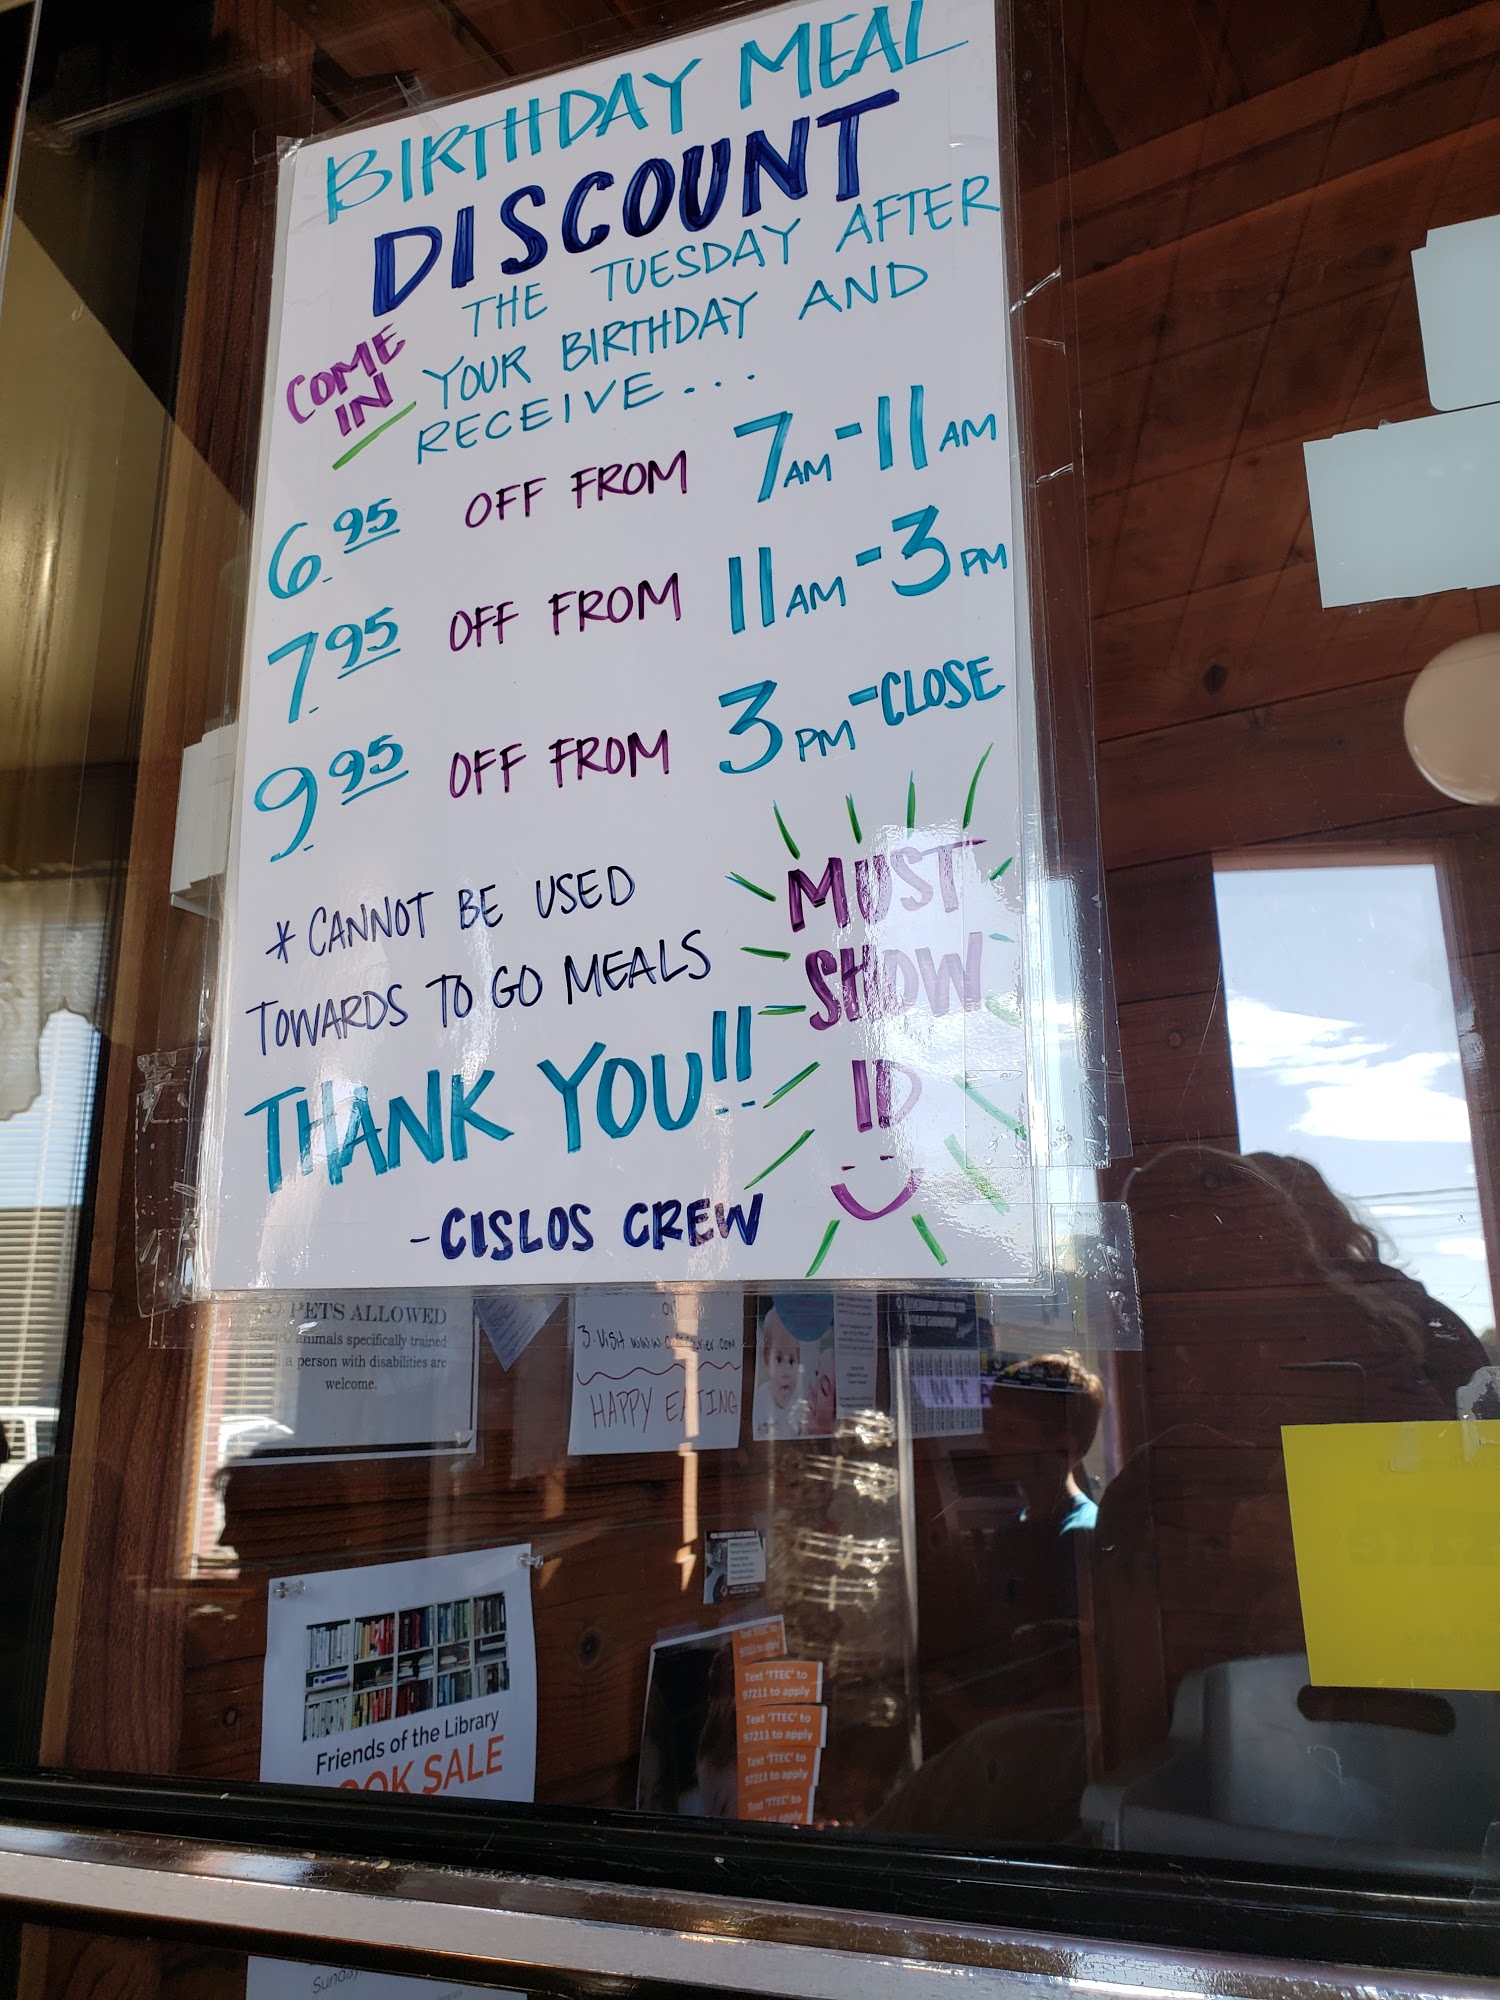 BIRTHDAY MEAL
DISCOUNT
COME
IN
THE TUESDAY AFTER
YOUR BIRTHDAY AND
RECEIVE...
6.95 OFF FROM 7AM-11AM
7.95 OFF FROM 11AM-3PM
9.95 OFF FROM 3PM-CLOSE
* CANNOT BE USED
TOWARDS TO GO MEALS
THANK YOU!!
-CISLOS CREW
MUST
SHOW
ID
PETS ALLOWED
animals specifically trained
a person with disabilities are
welcome.
3. Visit www.
HAPPY EATING
Friends of the Library
BOOK SALE
Text 'TTEC' to
97211 to apply
Text 'TTEC' to
97211 to apply
Text 'TTEC' to
97211 to apply
Text 'TTEC' to
97211 to apply
Text 'TTEC' to
Sunday